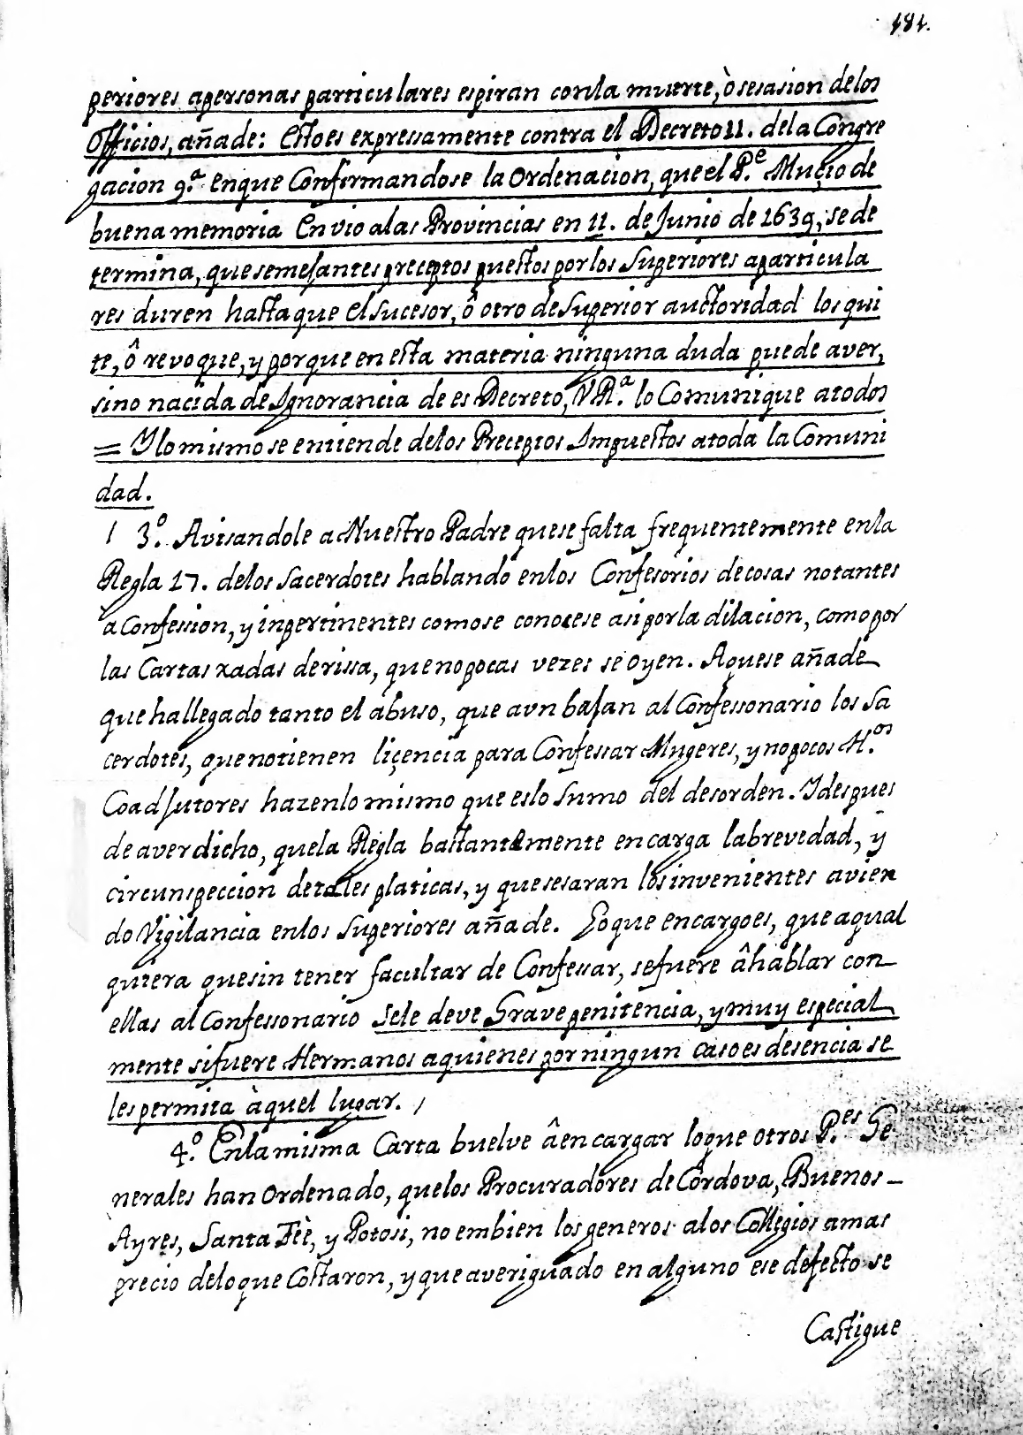 181.
periores apersonas particulares espiran conla muerte, ò sesasion delos
Officios, añade: Esto es expressamente contra el Decreto 11. dela Congre
gacion 9.ª enque Confirmandose la Ordenacion, que el P.e Muçio de
buena memoria Envio alas Provincias en 11. de Junio de 1639, se de
termina, que semejantes preceptos puestos por los Superiores aparticula
res duren hasta que el sucesor, ô otro de Superior auctoridad los qui
te, ô revoque, y porque en esta materia ninguna duda puede aver,
sino nacida de Ignorancia de es Decreto, V Rª. lo Comunique atodos
= Y lo mismo se entiende delos Preceptos Impuestos atoda la Comuni
dad.
/ 3.º Avisandole a Nuestro Padre que se falta frequentemente enla
Regla 17. delos Sacerdotes hablando enlos Confesorios de cosas notantes
a Confession, y inpertinentes como se conocese asi por la dilacion, como por
las Cartas xadas de rissa, que no pocas vezes se oyen. Aquese añade
que ha llegado tanto el abuso, que avn bajan al Confessonario los Sa
cerdotes, que notienen liçencia para Confessar Mugeres, y no pocos H.os
Coadjutores hazen lo mismo que es lo Sumo del desorden. Y despues
de aver dicho, quela Regla bastantemente encarga la brevedad, y
circunspeccion de tales platicas, y que sesaran los invenientes avien
do Vigilancia enlos Superiores añade. Lo que encargo es, que aqual
quiera que sin tener facultar de Confessar, se fuere â hablar con
ellas al Confessonario Sele deve Grave penitencia, y muy especial
mente si fuere Hermanos aquienes por ningun caso es desencia se
les permita àquel lugar. /
4.º En la misma Carta buelve â encargar lo que otros P.es Ge
nerales han Ordenado, que los Procuradores de Cordova, Buenos
Ayres, Santa Feè, y Potosi, no embien los generos alos Collegios amas
precio delo que Costaron, y que averiguado en alguno ese defecto se
Castigue